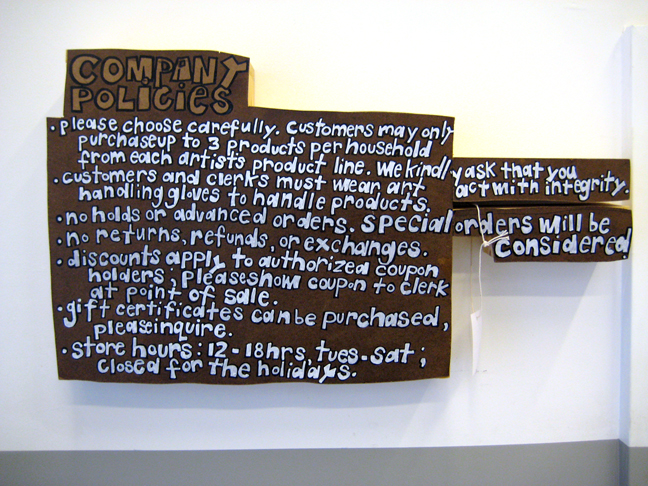 COMPANY
POLICIES
• please choose carefully. Customers may only
purchase up to 3 products per household
from each artist's product line. We kindly ask that you
act with integrity.
• customers and clerks must wear art
handling gloves to handle products.
• no holds or advanced orders. special orders will be
considered.
• no returns, refunds, or exchanges.
• discounts apply to authorized coupon
holders; please show coupon to clerk
at point of sale.
• gift certificates can be purchased,
please inquire.
• store hours: 12-18hrs, tues.-sat;
closed for the holidays.